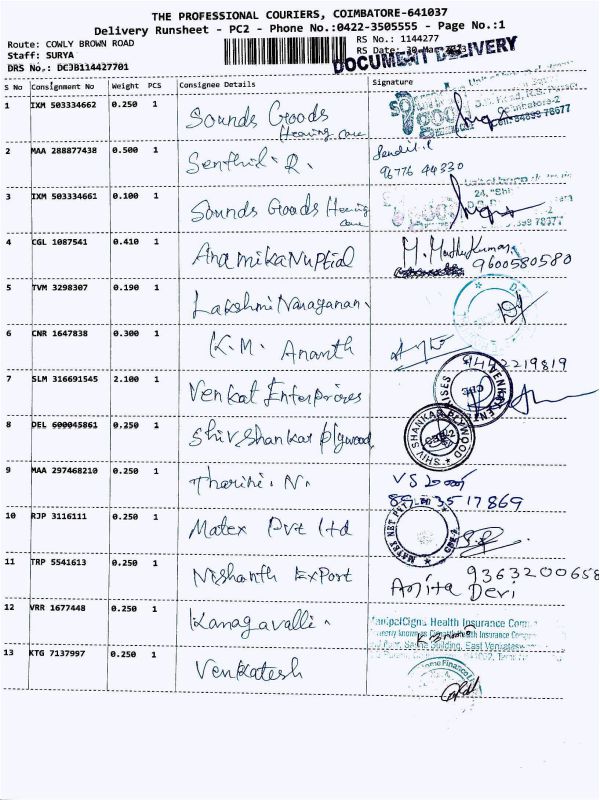 THE PROFESSIONAL COURIERS, COIMBATORE-641037
Delivery Runsheet - PC2 - Phone No.:0422-3505555 - Page No.:1
Route: COWLY BROWN ROAD
RS No.: 1144277
Staff: SURYA
RS Date: 30 Mar 2023
DOCUMENT DELIVERY
DRS No.: DCJB114427701
S No Consignment No Weight PCS Consignee Details Signature
1 IXM 503334662 0.250 1 Sounds Goods
Hearing care
2 MAA 288877438 0.500 1 Senthil. R.
96776 44330
3 IXM 503334661 0.100 1 Sounds Goods Hearing
care
4 CGL 1087541 0.410 1 Anamika Nuptial
9600580580
5 TVM 3298307 0.190 1 Lakshmi Narayanan.
6 CNR 1647838 0.300 1 K.M. Ananth
7 SLM 316691545 2.100 1 Venkat Enterprises
8 DEL 600045861 0.250 1 Shiv Shankar Plywood
SHIV SHANKAR PLYWOOD
9 MAA 297468210 0.250 1 Tharini. N.
10 RJP 3116111 0.250 1 Matex Pvt Ltd
11 TRP 5541613 0.250 1 Nishanth Export
9363200658
Anita Devi
12 VRR 1677448 0.250 1 Kanagavalli.
ManipalCigna Health Insurance
13 KTG 7137997 0.250 1 Venkatesh